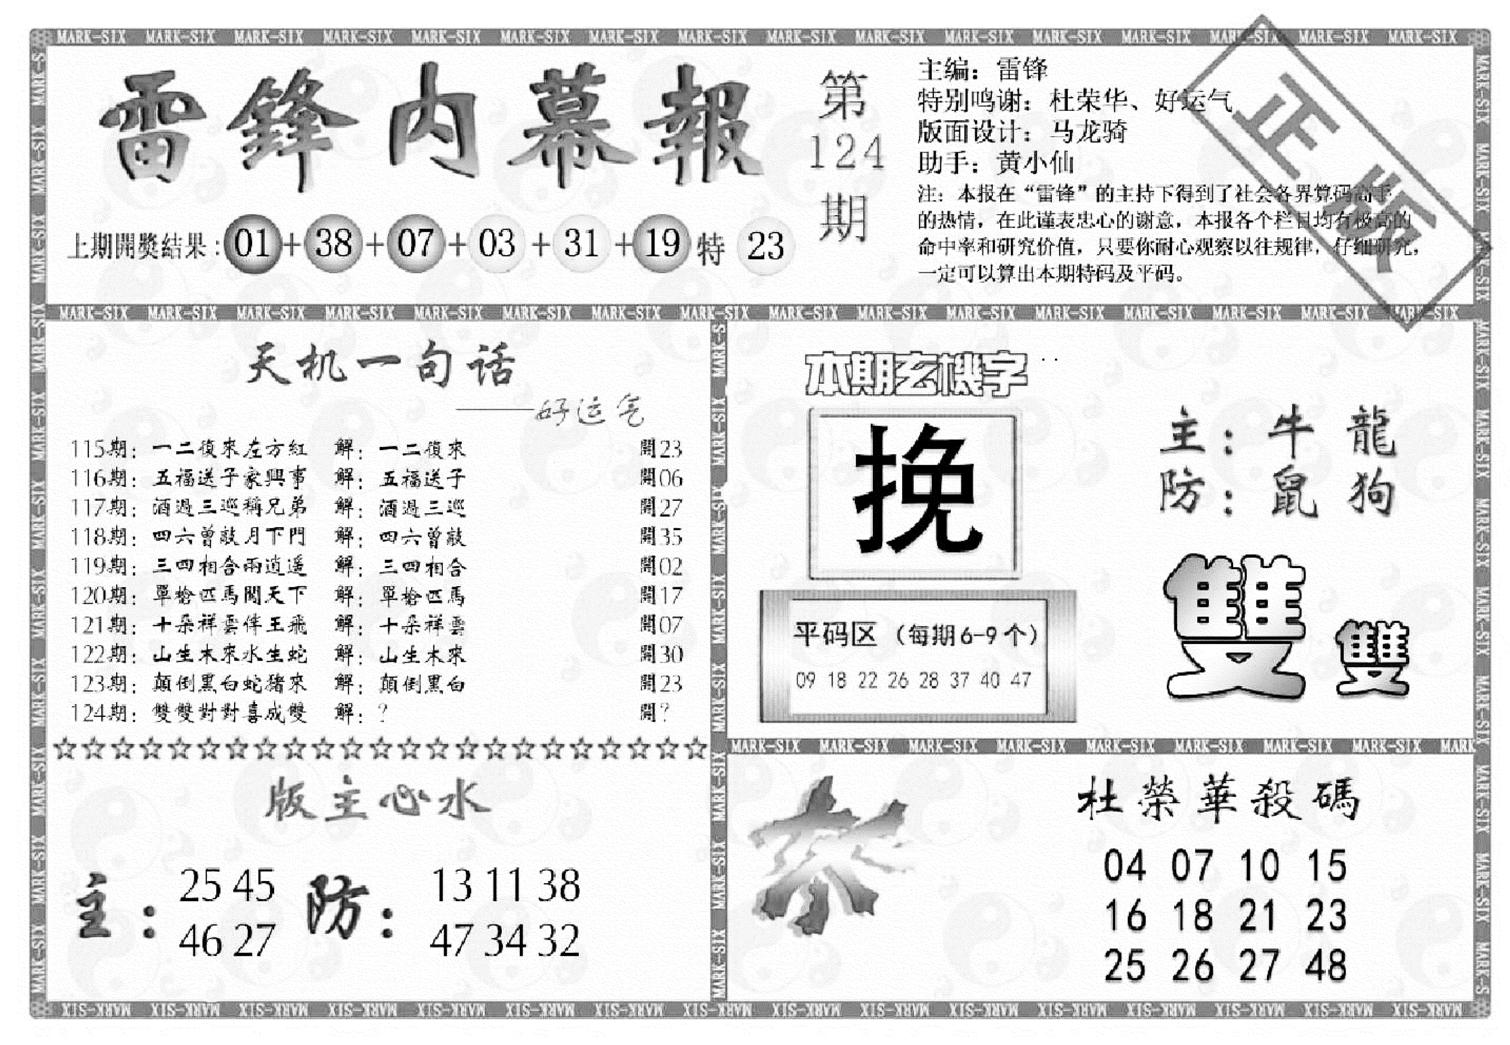 MARK-SIX MARK-SIX MARK-SIX MARK-SIX MARK-SIX MARK-SIX MARK-SIX MARK-SIX MARK-SIX MARK-SIX MARK-SIX MARK-SIX MARK-SIX MARK-SIX MARK-SIX MARK-SIX
雷鋒内幕報
第
124
期
主编：雷锋
特别鸣谢：杜荣华、好运气
版面设计：马龙骑
助手：黄小仙
注：本报在“雷锋”的主持下得到了社会各界算码高手
的热情，在此谨表忠心的谢意，本报各个栏目均有极高的
命中率和研究价值，只要你耐心观察以往规律，仔细研究，
一定可以算出本期特码及平码。
正版
上期開獎結果：01+38+07+03+31+19特 23
MARK-SIX MARK-SIX MARK-SIX MARK-SIX MARK-SIX MARK-SIX MARK-SIX MARK-SIX MARK-SIX MARK-SIX MARK-SIX MARK-SIX MARK-SIX MARK-SIX MARK-SIX MARK-SIX
天机一句话
——好运气
115期：一二復來左方紅 解：一二復來 開23
116期：五福送子家興事 解：五福送子 開06
117期：酒過三巡稱兄弟 解：酒過三巡 開27
118期：四六曾敲月下門 解：四六曾敲 開35
119期：三四相合兩逍遥 解：三四相合 開02
120期：單槍匹馬闖天下 解：單槍匹馬 開17
121期：十朵祥雲伴王飛 解：十朵祥雲 開07
122期：山生木來水生蛇 解：山生木來 開30
123期：顛倒黑白蛇猪來 解：顛倒黑白 開23
124期：雙雙對對喜成雙 解：？ 開？
☆☆☆☆☆☆☆☆☆☆☆☆☆☆☆☆☆☆☆☆☆☆☆
版主心水
主：
25 45
46 27
防：
13 11 38
47 34 32
本期玄機字
挽
平码区（每期6-9个）
09 18 22 26 28 37 40 47
主：牛 龍
防：鼠 狗
雙 雙
MARK-SIX MARK-SIX MARK-SIX MARK-SIX MARK-SIX MARK-SIX MARK-SIX MARK-SIX MARK
杀
杜榮華殺碼
04 07 10 15
16 18 21 23
25 26 27 48
MARK-SIX MARK-SIX MARK-SIX MARK-SIX MARK-SIX MARK-SIX MARK-SIX MARK-SIX MARK-SIX MARK-SIX MARK-SIX MARK-SIX MARK-SIX MARK-SIX MARK-SIX MARK-SIX